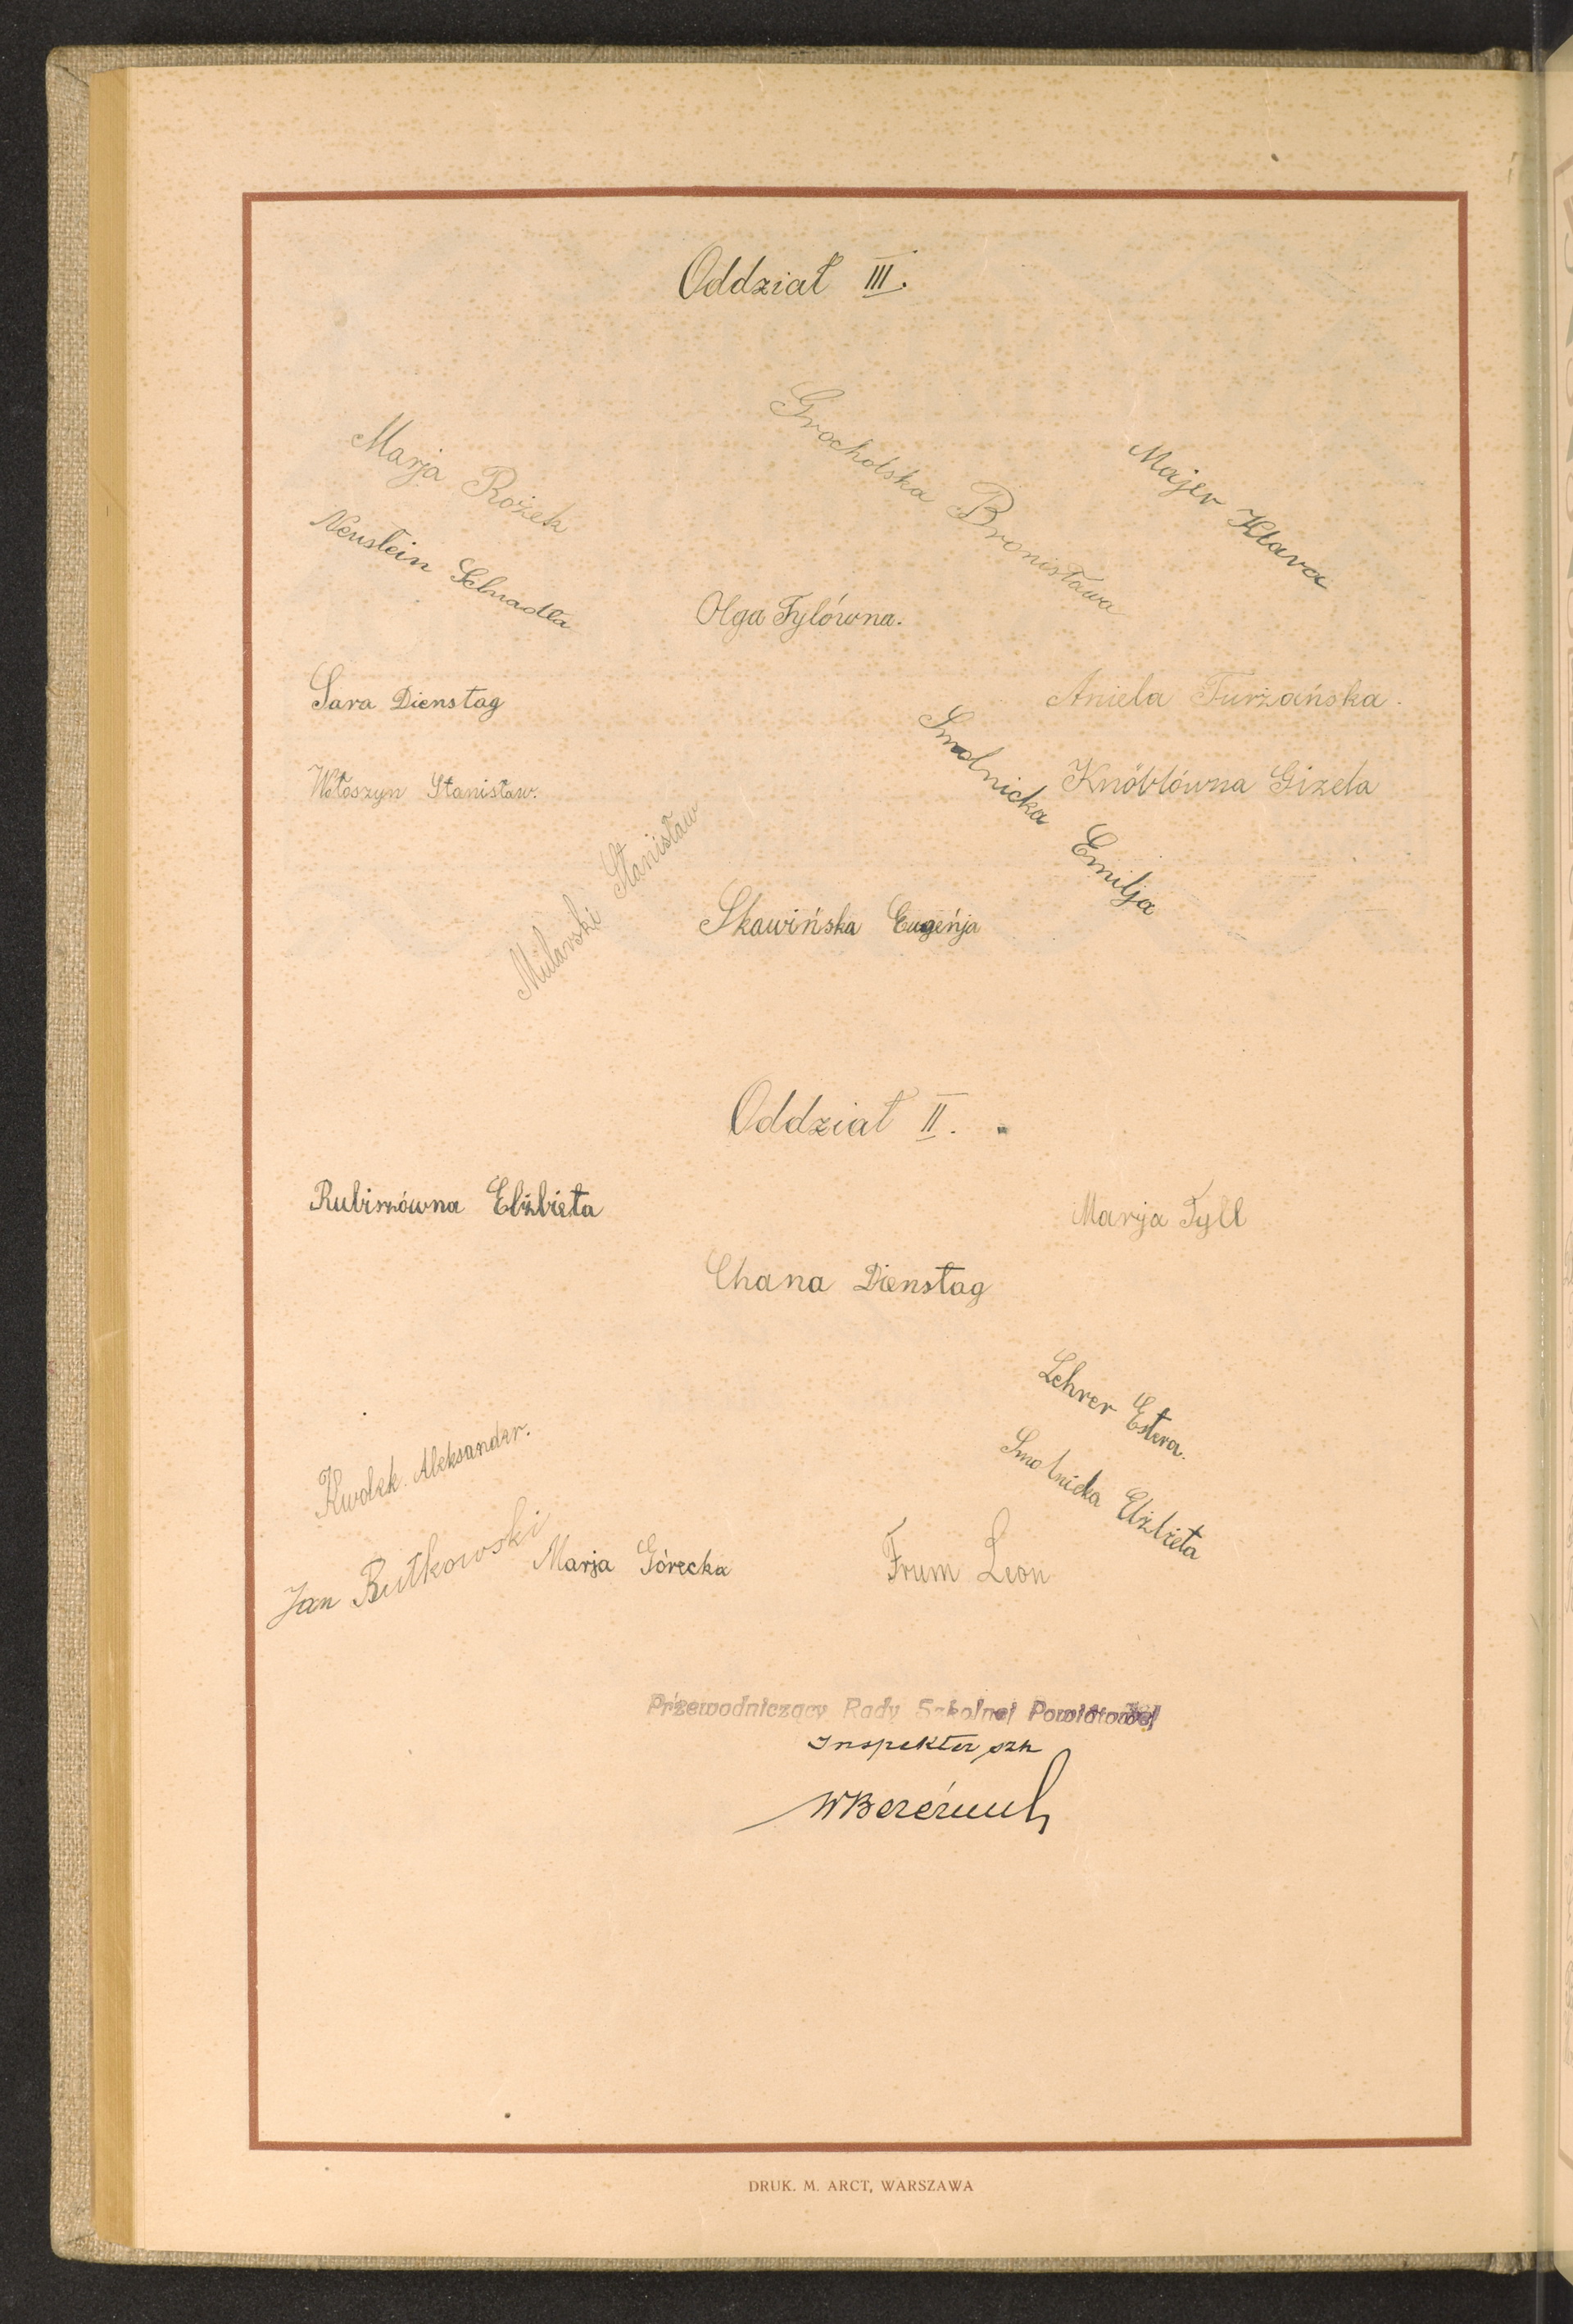 Oddział III.
Marja Rożek
Grocholska Bronisława
Majer Klara
Neustein Schradla
Olga Tylówna.
Sara Dienstag
Aniela Turzańska.
Smolnicka Emilja
Wołoszyn Stanisław.
Knöblówna Gizela
Milarski Stanisław
Skawińska Eugeńja
Oddział II.
Rubiszówna Elżbieta
Marja Tyll
Chana Dienstag
Lehrer Estera.
Kwolek Aleksander.
Smolnicka Elżbieta
Jan Rutkowski
Marja Górecka
Frum Leon
Przewodniczący Rady Szkolnej Powiatowej
Inspektor szk
DRUK. M. ARCT, WARSZAWA